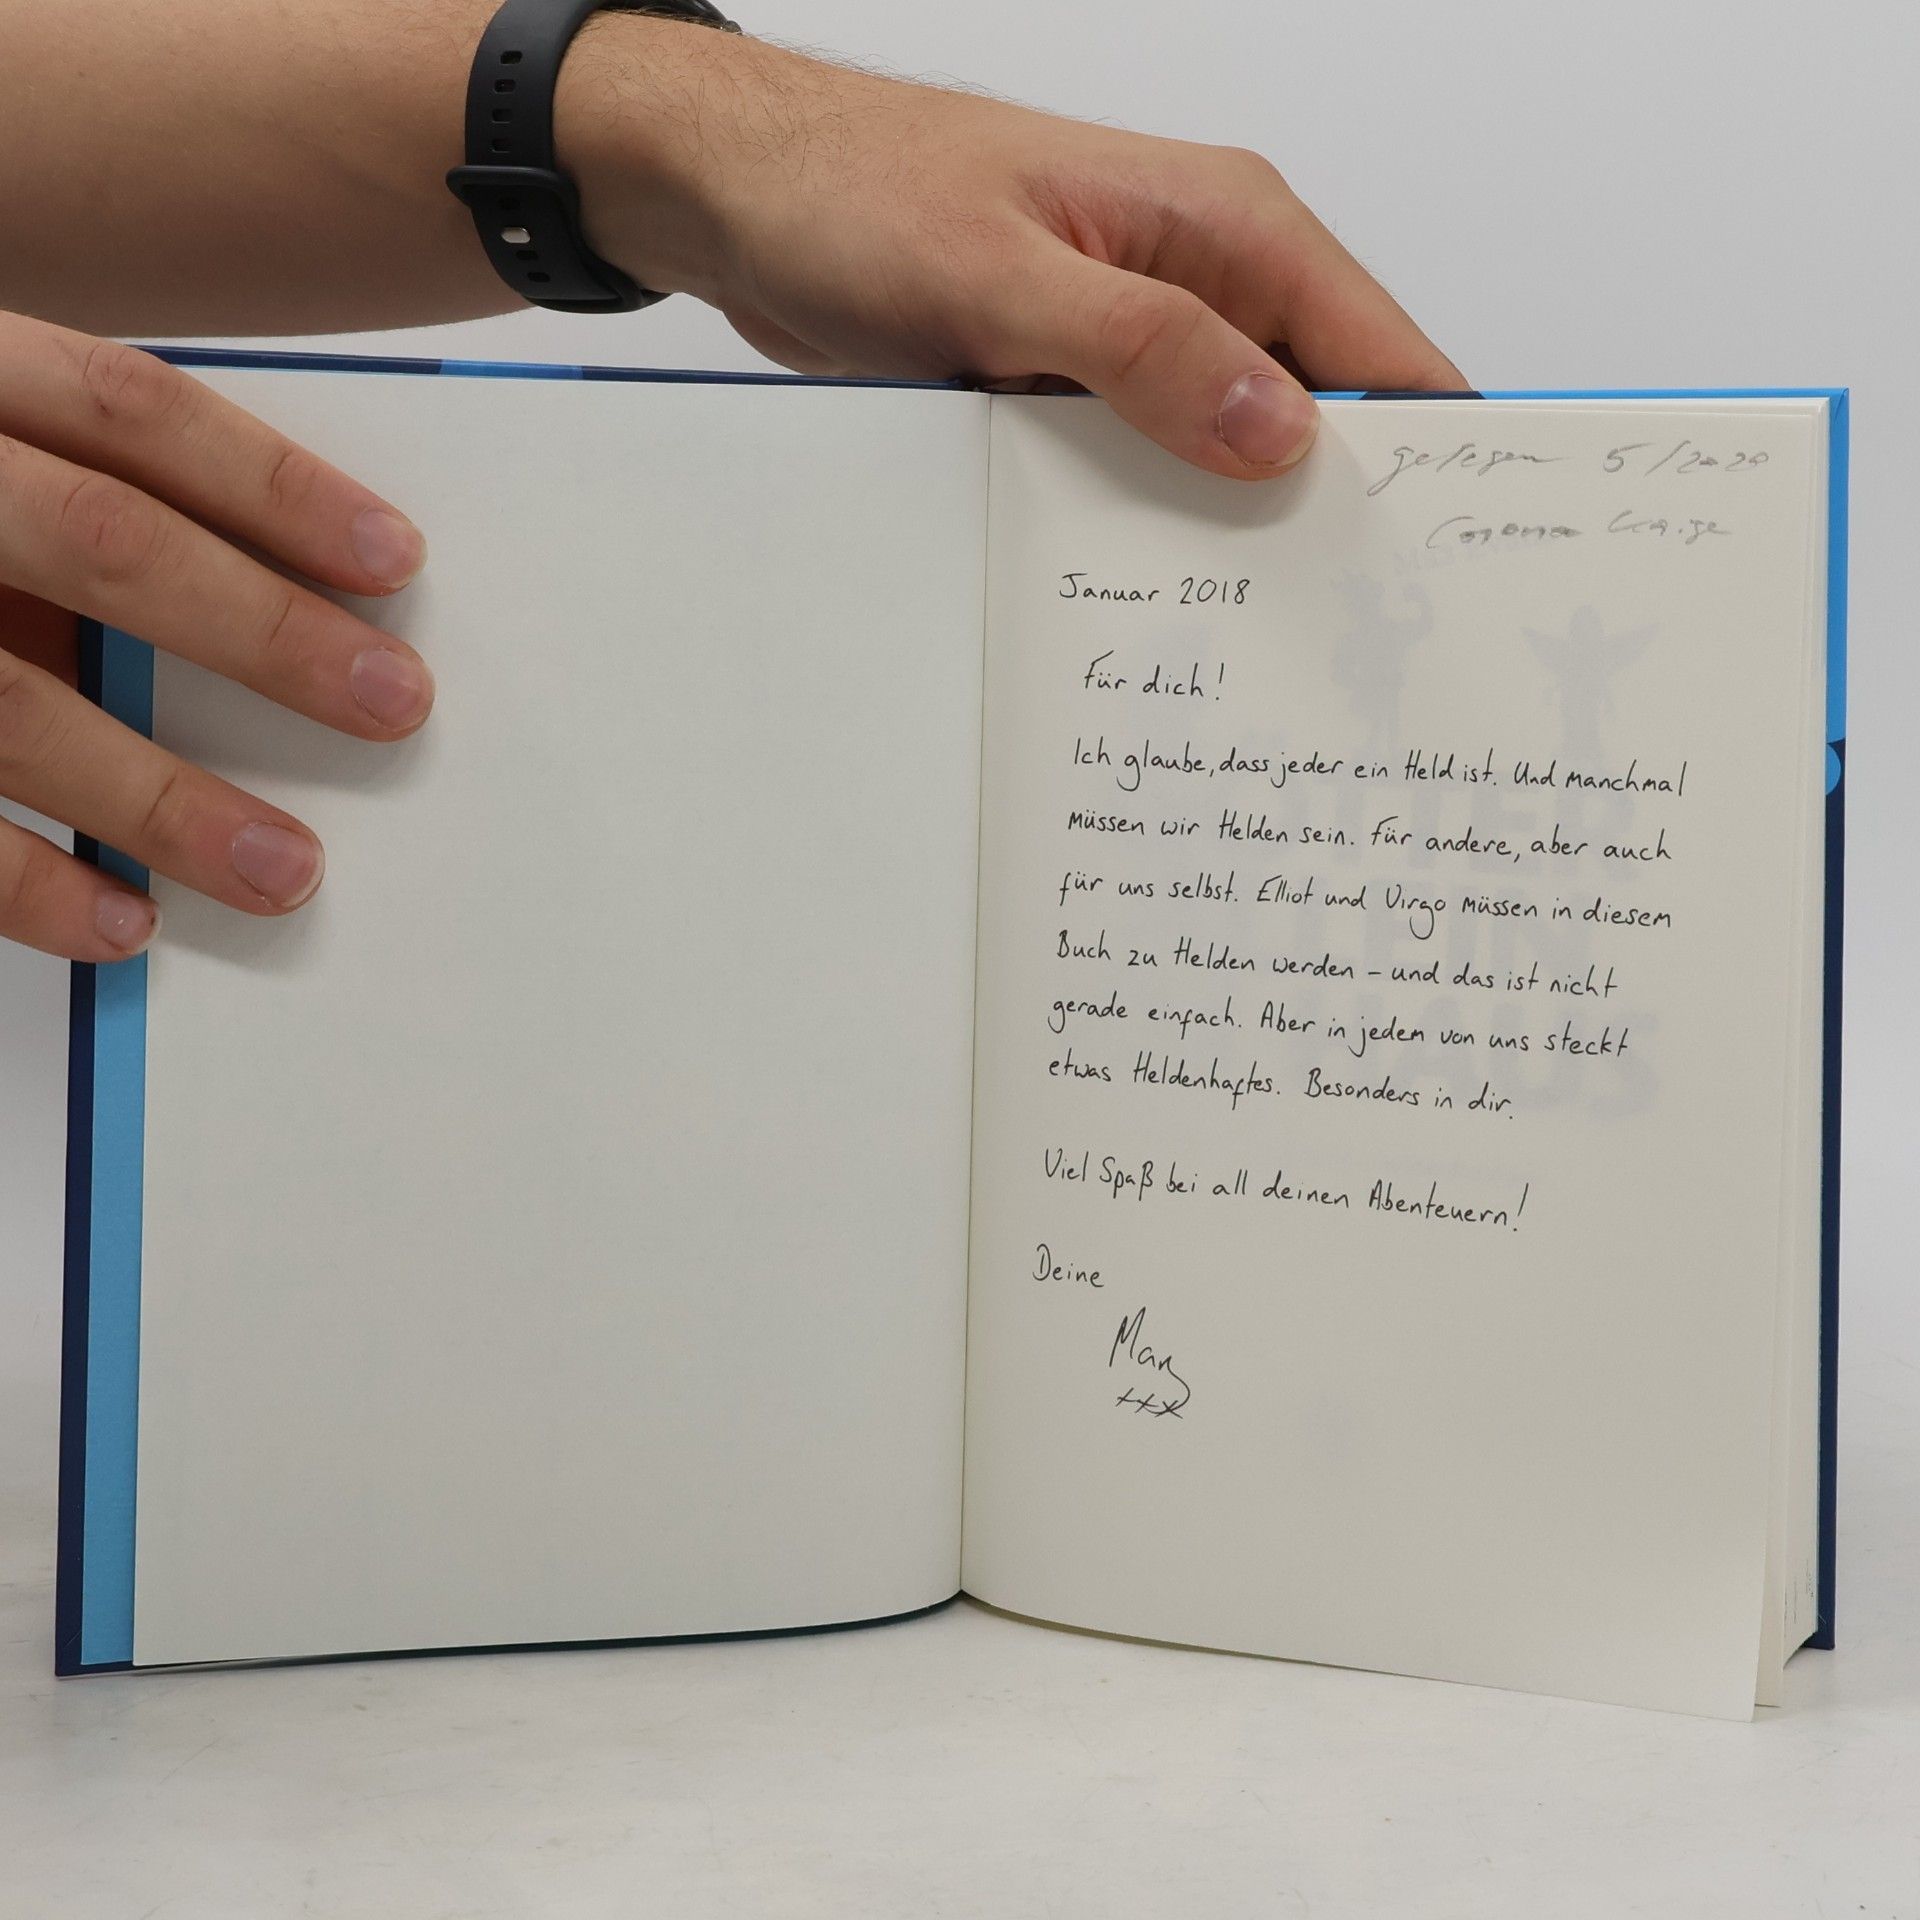 gelesen 5/2020
Corona
Januar 2018
Für dich!
Ich glaube, dass jeder ein Held ist. Und manchmal
müssen wir Helden sein. Für andere, aber auch
für uns selbst. Elliot und Virgo müssen in diesem
Buch zu Helden werden – und das ist nicht
gerade einfach. Aber in jedem von uns steckt
etwas Heldenhaftes. Besonders in dir.
Viel Spaß bei all deinen Abenteuern!
Deine
Maz
xxx